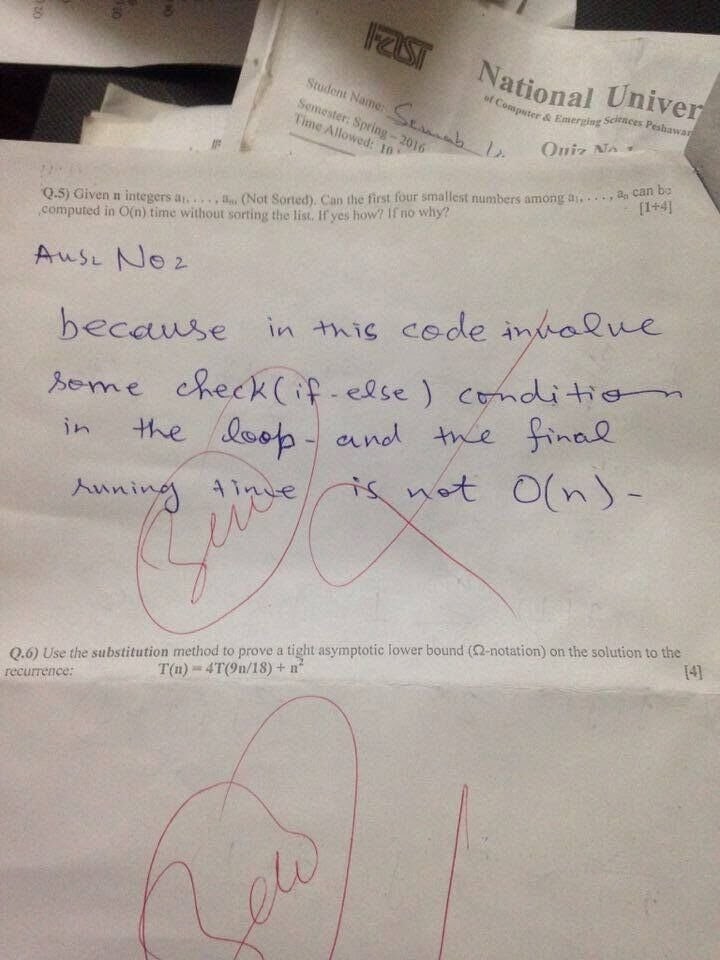 FAST
National Univer
of Computer & Emerging Sciences Peshawar
Student Name:
Semester: Spring - 2016
Time Allowed: 10
Quiz No
Q.5) Given n integers a₁, . . . , aₙ, (Not Sorted). Can the first four smallest numbers among a₁, . . . , aₙ can be
computed in O(n) time without sorting the list. If yes how? If no why?
[1+4]
Ans: No :
because in this code involve
some check (if-else) condition
in the loop - and the final
runing time is not O(n) -
Zero
Q.6) Use the substitution method to prove a tight asymptotic lower bound (Ω-notation) on the solution to the
recurrence: T(n) = 4T(9n/18) + n²
[4]
Zero